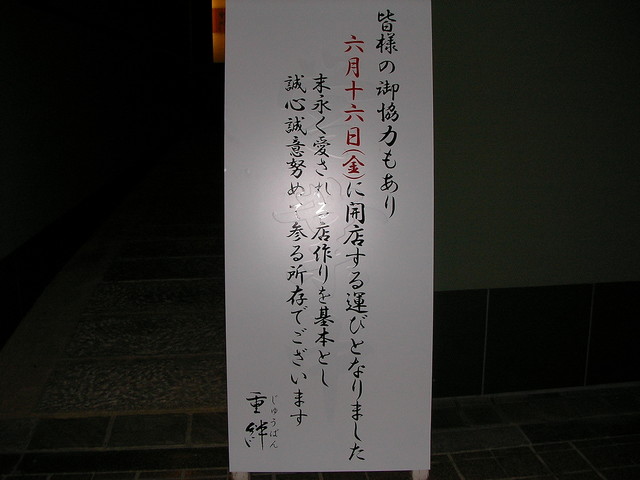 皆様の御協力もあり
六月十六日(金)に開店する運びとなりました
末永く愛される店作りを基本とし
誠心誠意努めて参る所存でございます
じゅうばん
重絆